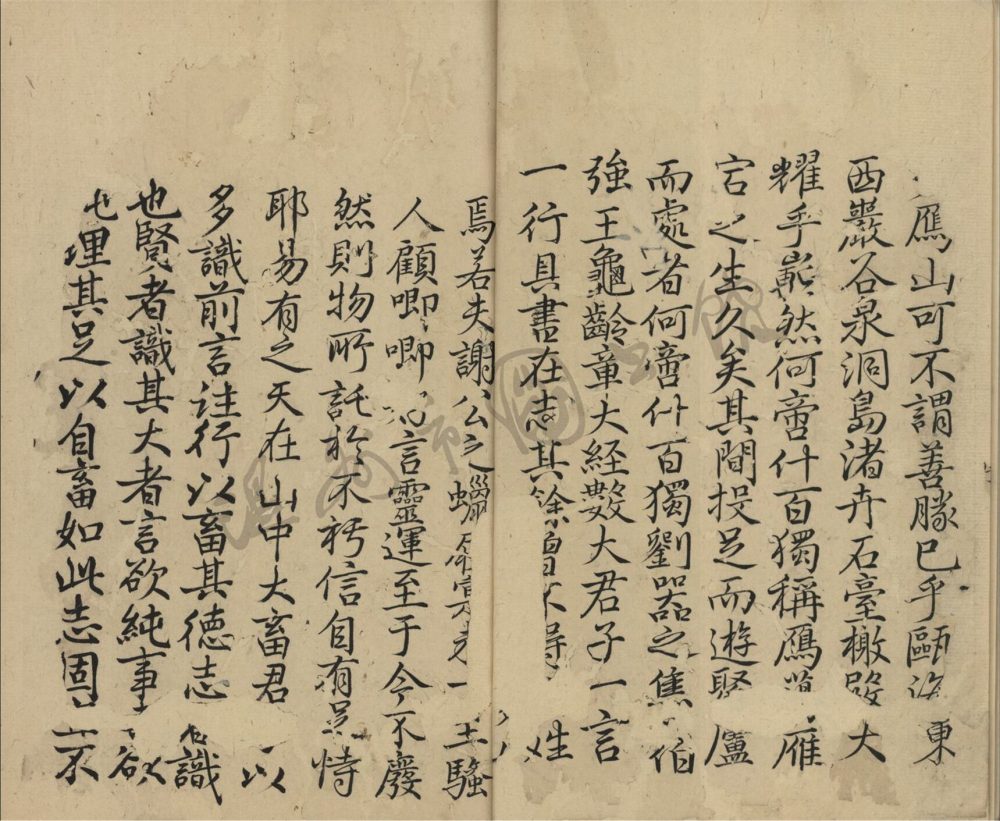 鴈山可不謂善勝已乎甌 東
西巖谷泉洞島渚卉石臺橄 大
耀乎嶄然何啻什百獨稱鴈 雁
宕之生久矣其間投足而遊 廬
而處者何啻什百獨劉器之焦伯
強王龜齡章大経數大君子一言
一行具書在志其餘曾不得 姓
焉若夫謝公之蠟 一 王騷
人顧唧唧 言靈運至于今不廢
然則物所託於不朽信自有足恃
耶易有之天在山中大畜君 以
多識前言往行以畜其德志 識
也賢者識其大者言欲純事 欲
理其足以自畜如此志固